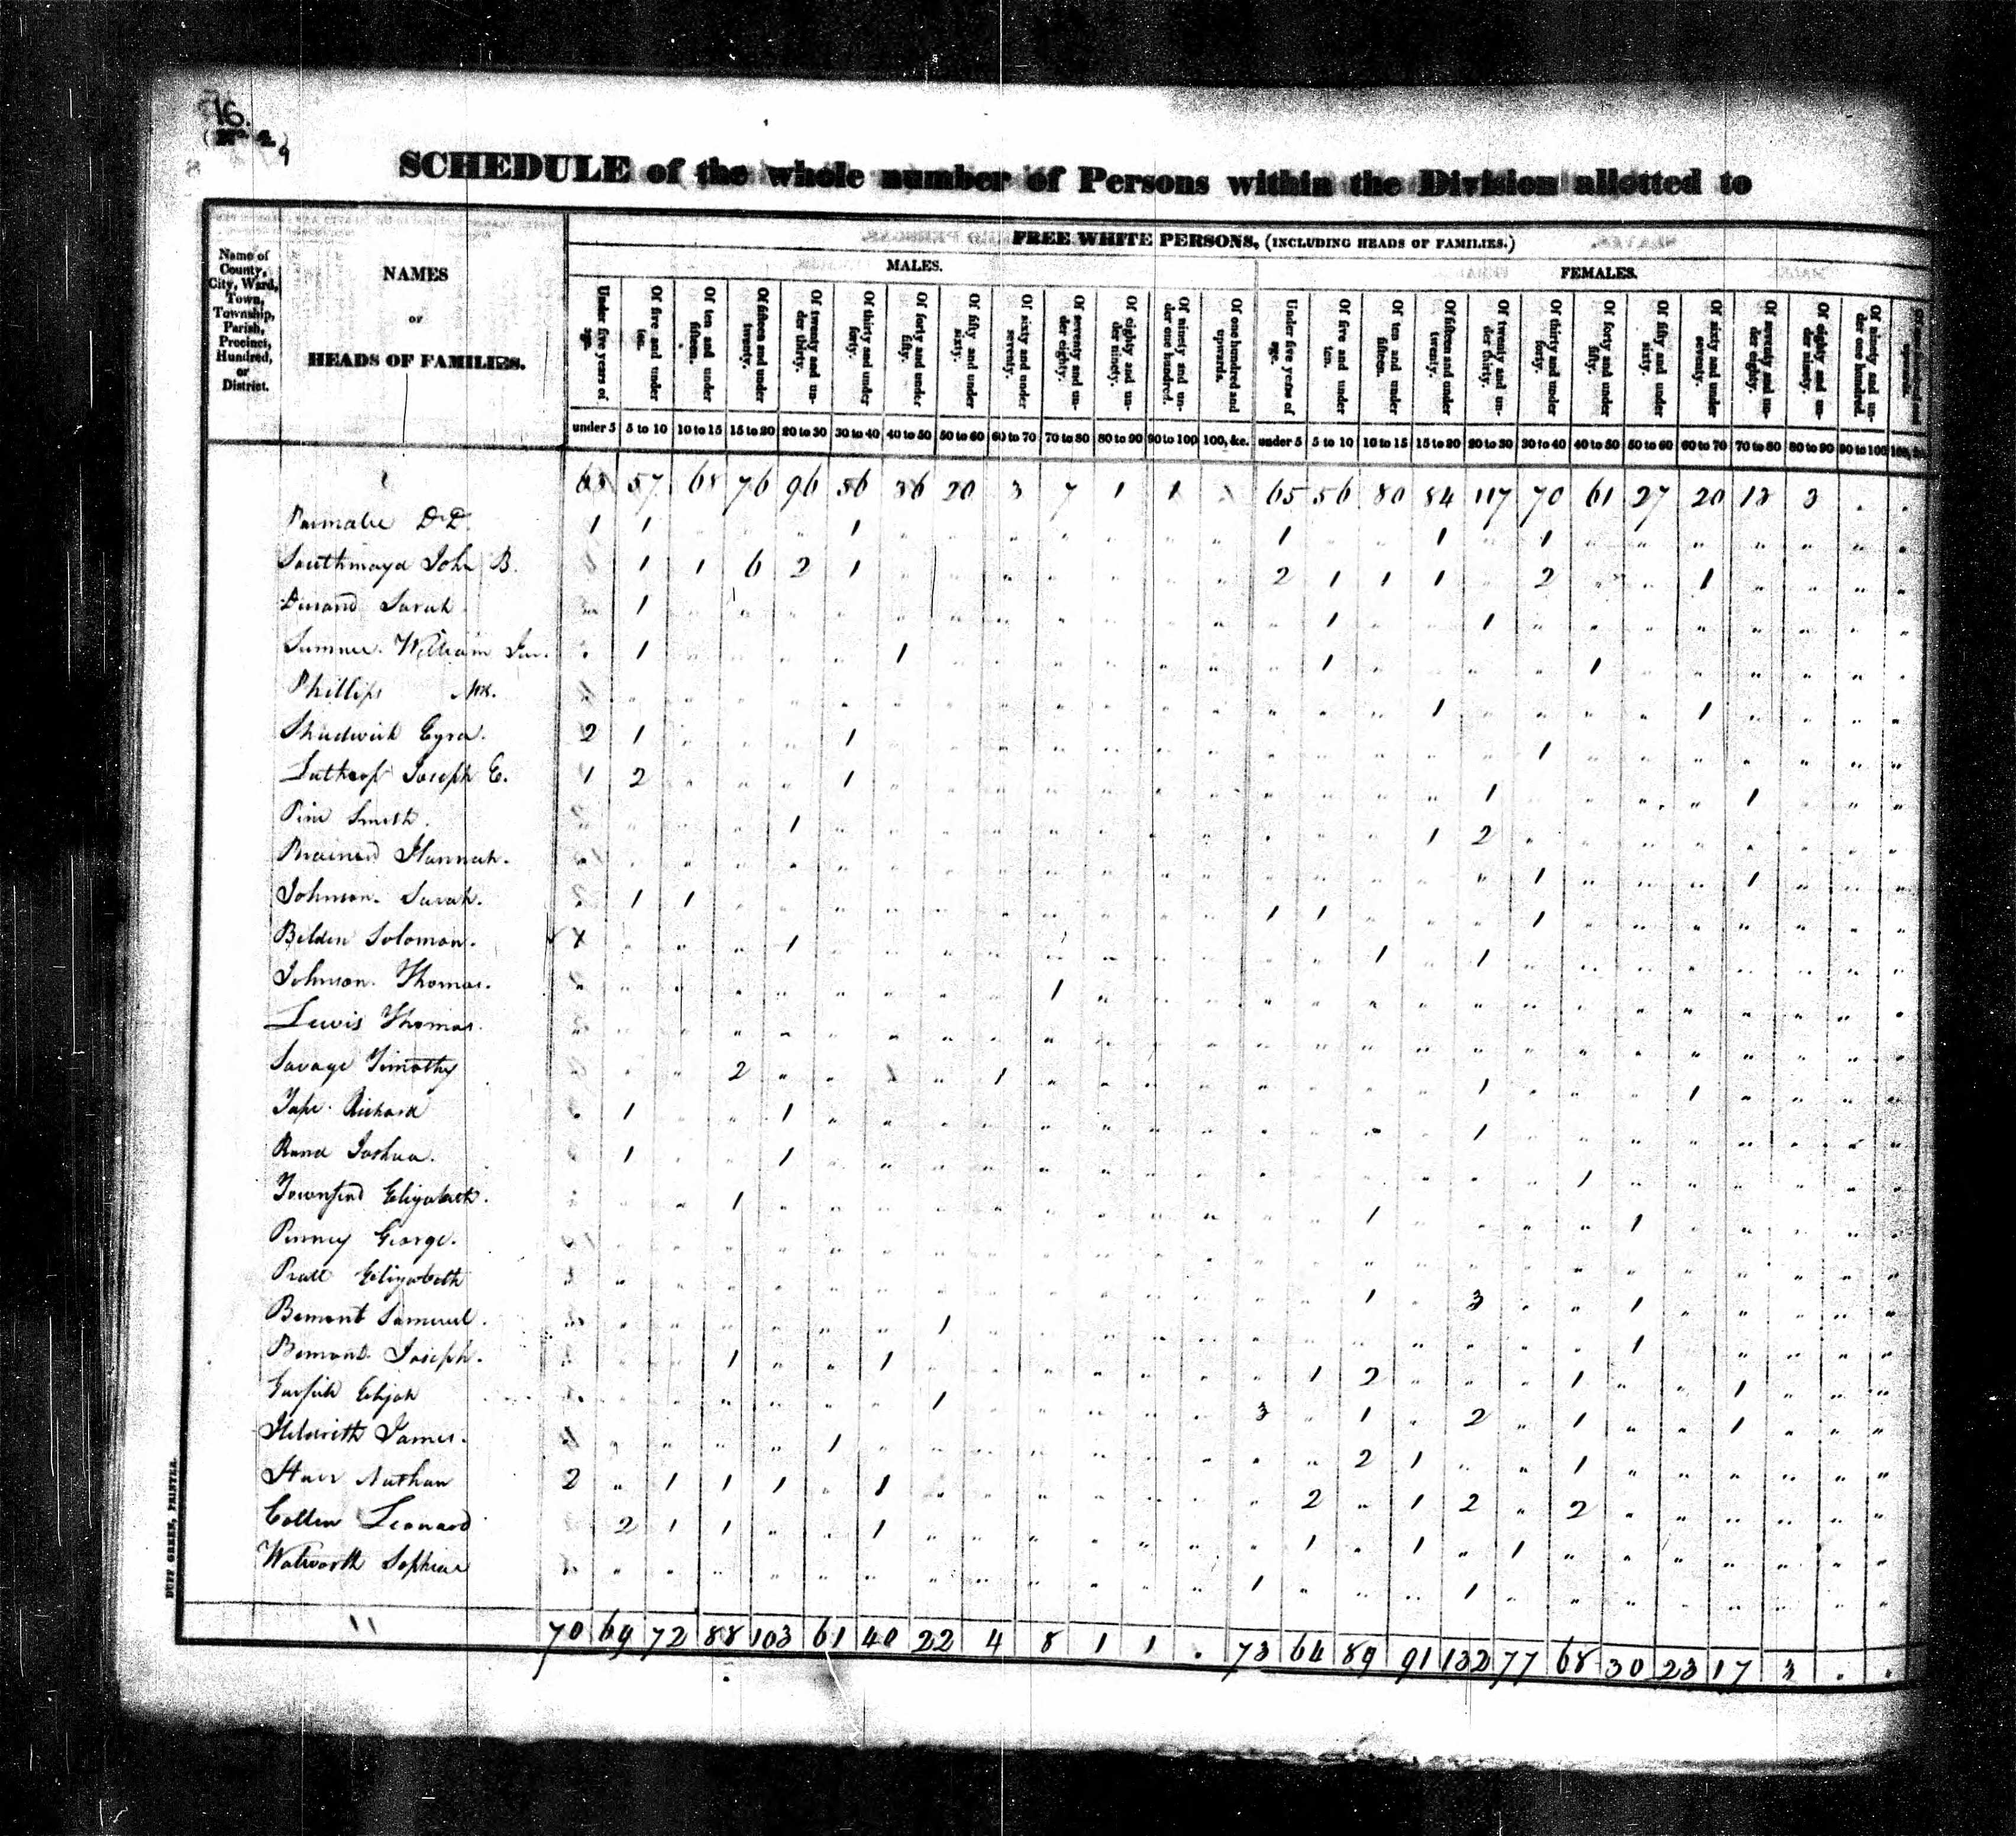 16.
(No. 2
9
SCHEDULE of the whole number of Persons within the Division allotted to
Name of County, City, Ward, Town, Township, Parish, Precinct, Hundred, or District.
NAMES
OF
HEADS OF FAMILIES.
FREE WHITE PERSONS, (INCLUDING HEADS OF FAMILIES.)
MALES.
FEMALES.
Under five years of age. Of five and under ten. Of ten and under fifteen. Of fifteen and under twenty. Of twenty and under thirty. Of thirty and under forty. Of forty and under fifty. Of fifty and under sixty. Of sixty and under seventy. Of seventy and under eighty. Of eighty and under ninety. Of ninety and under one hundred. Of one hundred and upwards. Under five years of age. Of five and under ten. Of ten and under fifteen. Of fifteen and under twenty. Of twenty and under thirty. Of thirty and under forty. Of forty and under fifty. Of fifty and under sixty. Of sixty and under seventy. Of seventy and under eighty. Of eighty and under ninety. Of ninety and under one hundred. upwards.
under 5 5 to 10 10 to 15 15 to 20 20 to 30 30 to 40 40 to 50 50 to 60 60 to 70 70 to 80 80 to 90 90 to 100 100, &c. under 5 5 to 10 10 to 15 15 to 20 20 to 30 30 to 40 40 to 50 50 to 60 60 to 70 70 to 80 80 to 90 90 to 100
57 68 76 96 56 36 20 3 7 1 1 65 56 80 84 117 70 61 27 20 13 3
Parmalee D D. 1 1 1 1 1 1
Southmayd John B. 1 1 6 2 1 2 1 1 1 2 1
Durand Sarah 1 1 1
Sumner William Jun. 1 1 1 1
Phillips Mr. 1 1
Shadwick Ezra. 2 1 1 1
Lathrop Joseph E. 1 2 1 1 1
Pim Smith. 1 1 2
Brainerd Hannah. 1 1
Johnson Sarah. 1 1 1 1 1
Belden Solomon. 1 1 1
Johnson Thomas. 1
Lewis Thomas.
Savage Timothy 2 1 1 1
Richard 1 1 1
Rand Joshua. 1 1 1
Townsend Elizabeth. 1 1 1
Pinney George.
Pratt Elizabeth 1 3 1
Bemont Samuel. 1 1
Bemont Joseph. 1 1 1 2 1 1
Elijah 1 3 1 2 1 1
Hildreth James. 1 2 1 1
Starr Nathan 2 1 1 1 1 2 1 2 2
Leonard 2 1 1 1 1 1 1
Walworth Sophia 1 1
70 69 72 88 103 61 40 22 4 8 1 1 73 64 89 91 132 77 68 30 23 17 3
DUFF GREEN, PRINTER.